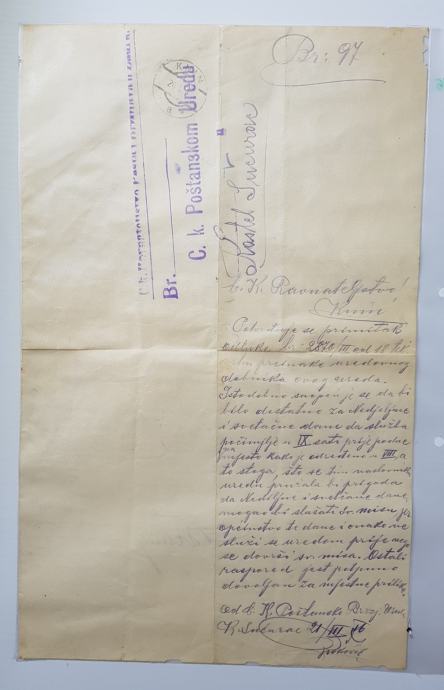 Br: 97
C. k. Ravnateljstvo Pošta i Brzojava u Zadru.
Br.
C. k. Poštanskom Uredu
Kastel Sućurac
C. K. Ravnateljstvo
Potvrđuje se primitak
br: III od 18
uredovnog
ovog ureda.
Istodobno je se da bi
bilo dostatno za Nedjeljne
i svetačne dane da služba
počimlje u IX sati prije podne
mjesto kako je određeno u VIII, a
to stoga, što se tim
uredu pružala bi prigoda
da Nedjeljne i svetačne dane
mogao bi slušati sv. misu jer
općinstvo te dane i onako ne
služi se uredom prije nego
se dovrši sv. misa. Ostali
raspored jest potpuno
dovoljan za mjestne prilike.
Od C. K. Poštanski Brzoj. Ured
K. Sućurac 21/III 16